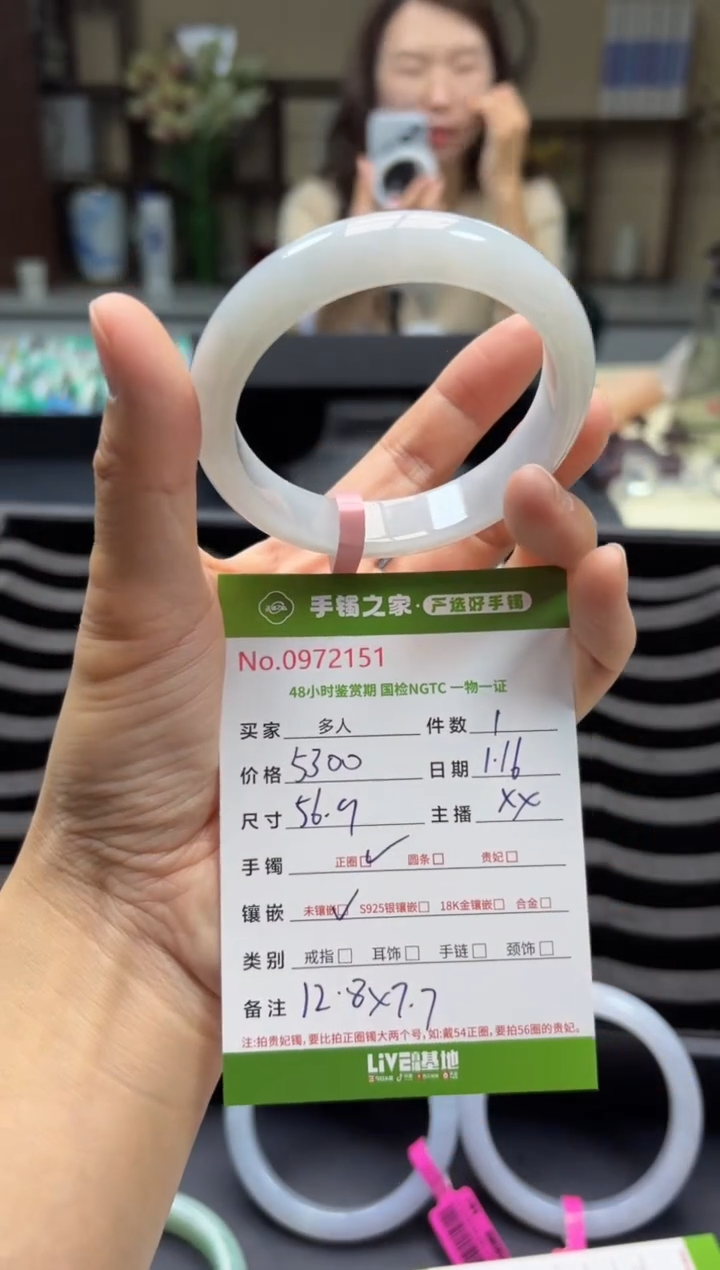 手镯之家·严选好手镯
No.0972151
48小时鉴赏期 国检NGTC 一物一证
买家 多人 件数 1
价格 5300 日期 1.16
尺寸 56.9 主播 XX
手镯 正圈☑ 圆条☐ 贵妃☐
镶嵌 未镶嵌☑ S925银镶嵌☐ 18K金镶嵌☐ 合金☐
类别 戒指☐ 耳饰☐ 手链☐ 颈饰☐
备注 12.8X7.7
注:拍贵妃镯,要比拍正圈镯大两个号,如:戴54正圈,要拍56圈的贵妃。
LiVE基地